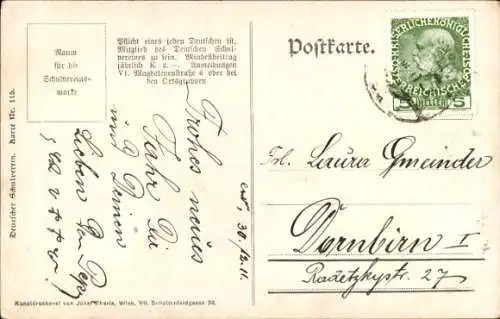 Raum
für die
Schulvereins-
marke
Pflicht eines jeden Deutschen ist,
Mitglied des Deutschen Schul-
vereines zu sein. Mindestbeitrag
jährlich K 2.—. Anmeldungen
VI. Magdalenenstraße 6 oder bei
den Ortsgruppen
Deutscher Schulverein. Karte Nr. 115.
Frohes neues
Jahr Dir
und Deinen
Lieben
30/12.11.
Kunstdruckerei von Josef Eberle, Wien, VII. Schottenfeldgasse 38.
Postkarte.
KAISERLICHEKÖNIGLICHE
ÖSTERREICHISCHE
5 HELLER 5
Frl. Laura Gmeinder
Dornbirn I
Radetzkystr. 27